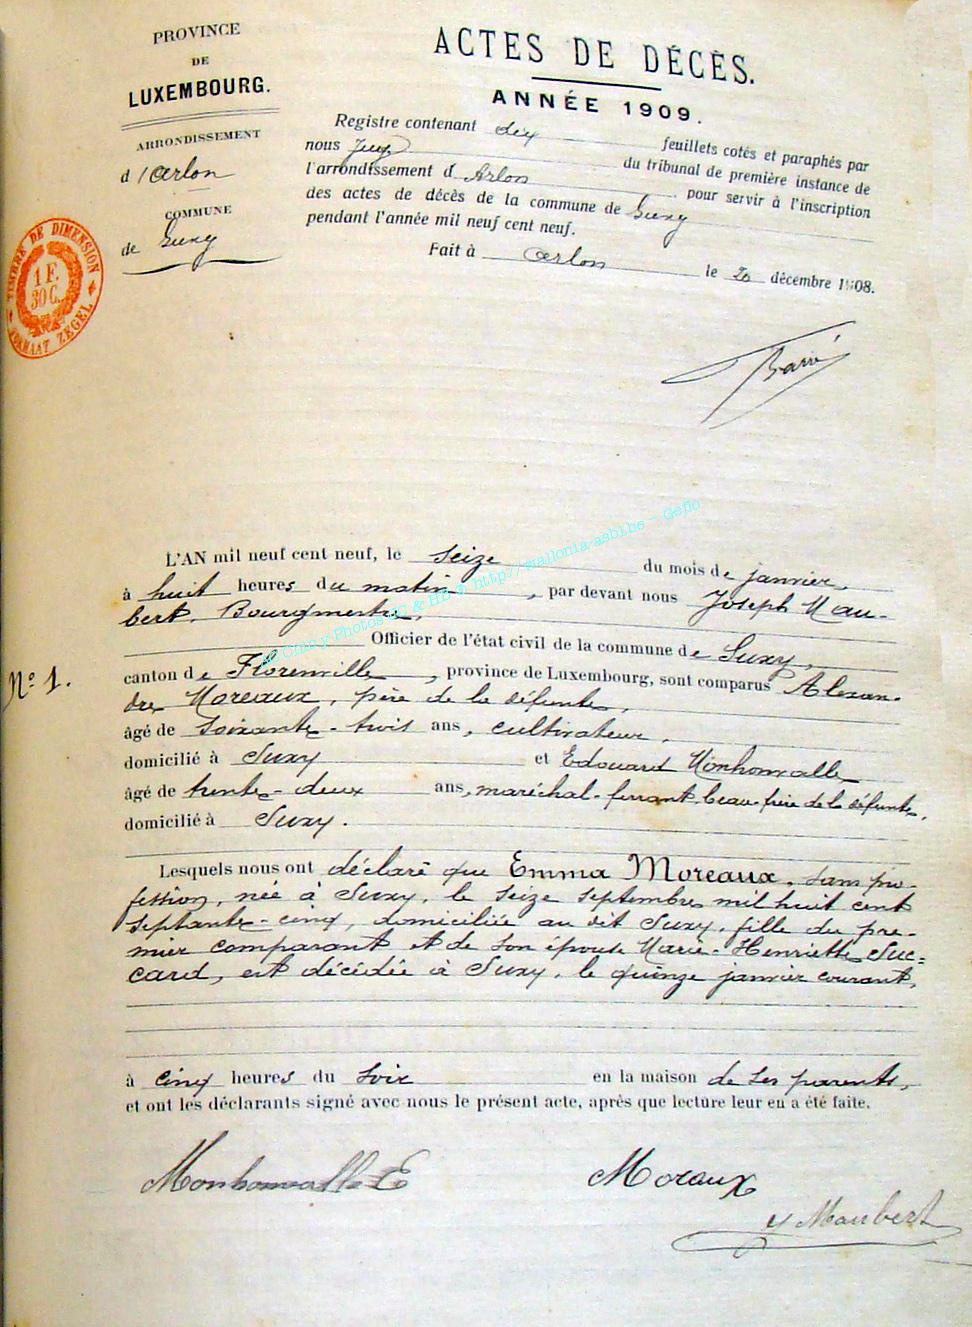 PROVINCE
DE
LUXEMBOURG.
ARRONDISSEMENT
d'Arlon
COMMUNE
de Suxy
TIMBRE DE DIMENSION
1 F.
30 C.
FORMAAT ZEGEL
ACTES DE DÉCÈS.
ANNÉE 1909.
Registre contenant dix feuillets cotés et paraphés par
nous Juge du tribunal de première instance de
l'arrondissement d'Arlon pour servir à l'inscription
des actes de décès de la commune de Suxy
pendant l'année mil neuf cent neuf.
Fait à Arlon le 20 décembre 1908.
http://wallonia-asbl.be - Geflo
N° 1.
L'AN mil neuf cent neuf, le seize du mois de janvier,
à huit heures du matin, par devant nous Joseph Mau-
bert, Bourgmestre,
Officier de l'état civil de la commune de Suxy,
canton de Florenville, province de Luxembourg, sont comparus Alexan-
dre Moreaux, père de la défunte,
âgé de soixante-trois ans, cultivateur,
domicilié à Suxy et Edouard Monhonvalle
âgé de trente-deux ans, maréchal-ferrant, beau-frère de la défunte,
domicilié à Suxy.
Lesquels nous ont déclaré que Emma Moreaux, sans pro-
fession, née à Suxy, le seize septembre mil huit cent
septante-cinq, domiciliée au dit Suxy, fille du pre-
mier comparant et de son épouse Marie-Henriette Suc-
card, est décédée à Suxy, le quinze janvier courant,
à cinq heures du soir en la maison de ses parents,
et ont les déclarants signé avec nous le présent acte, après que lecture leur en a été faite.
Monhonvalle E Moraux
J Maubert